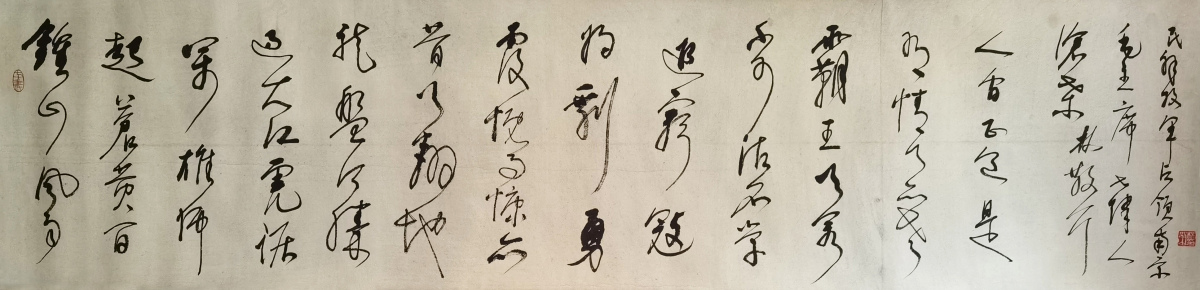 鐘山風雨
起蒼黄百
萬雄师
过大江虎踞
龙盤今勝
昔天翻地
覆慨而慷宜
将剩勇
追窮寇
不可沽名学
霸王天若
有情天亦老
人间正道是
滄桑 林散耳
毛主席七律人
民解放军占领南京